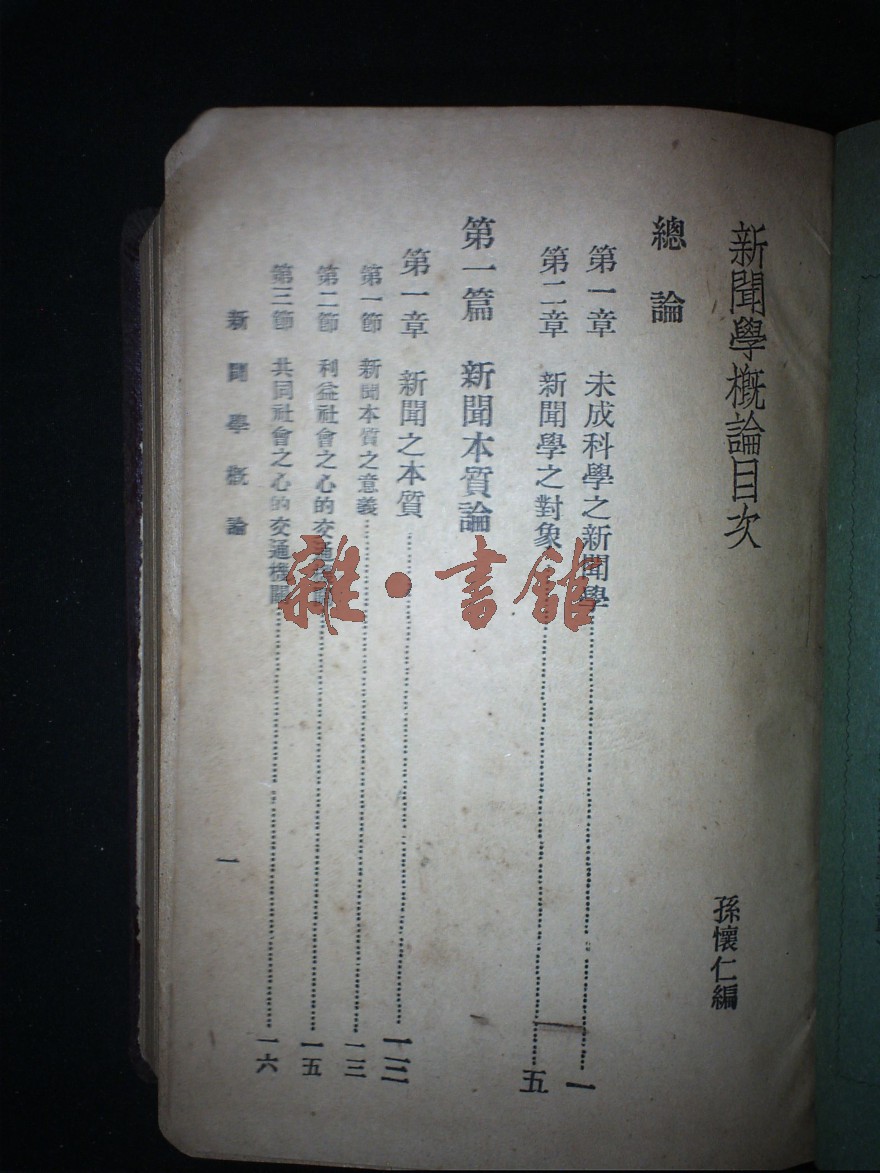 新聞學概論目次
孫懷仁編
總論
第一章 未成科學之新聞學……一
第二章 新聞學之對象……五
第一篇 新聞本質論
第一章 新聞之本質……一三
第一節 新聞本質之意義……一三
第二節 利益社會之心的交通機關……一五
第三節 共同社會之心的交通機關……一六
新聞學概論
一
雜·書館